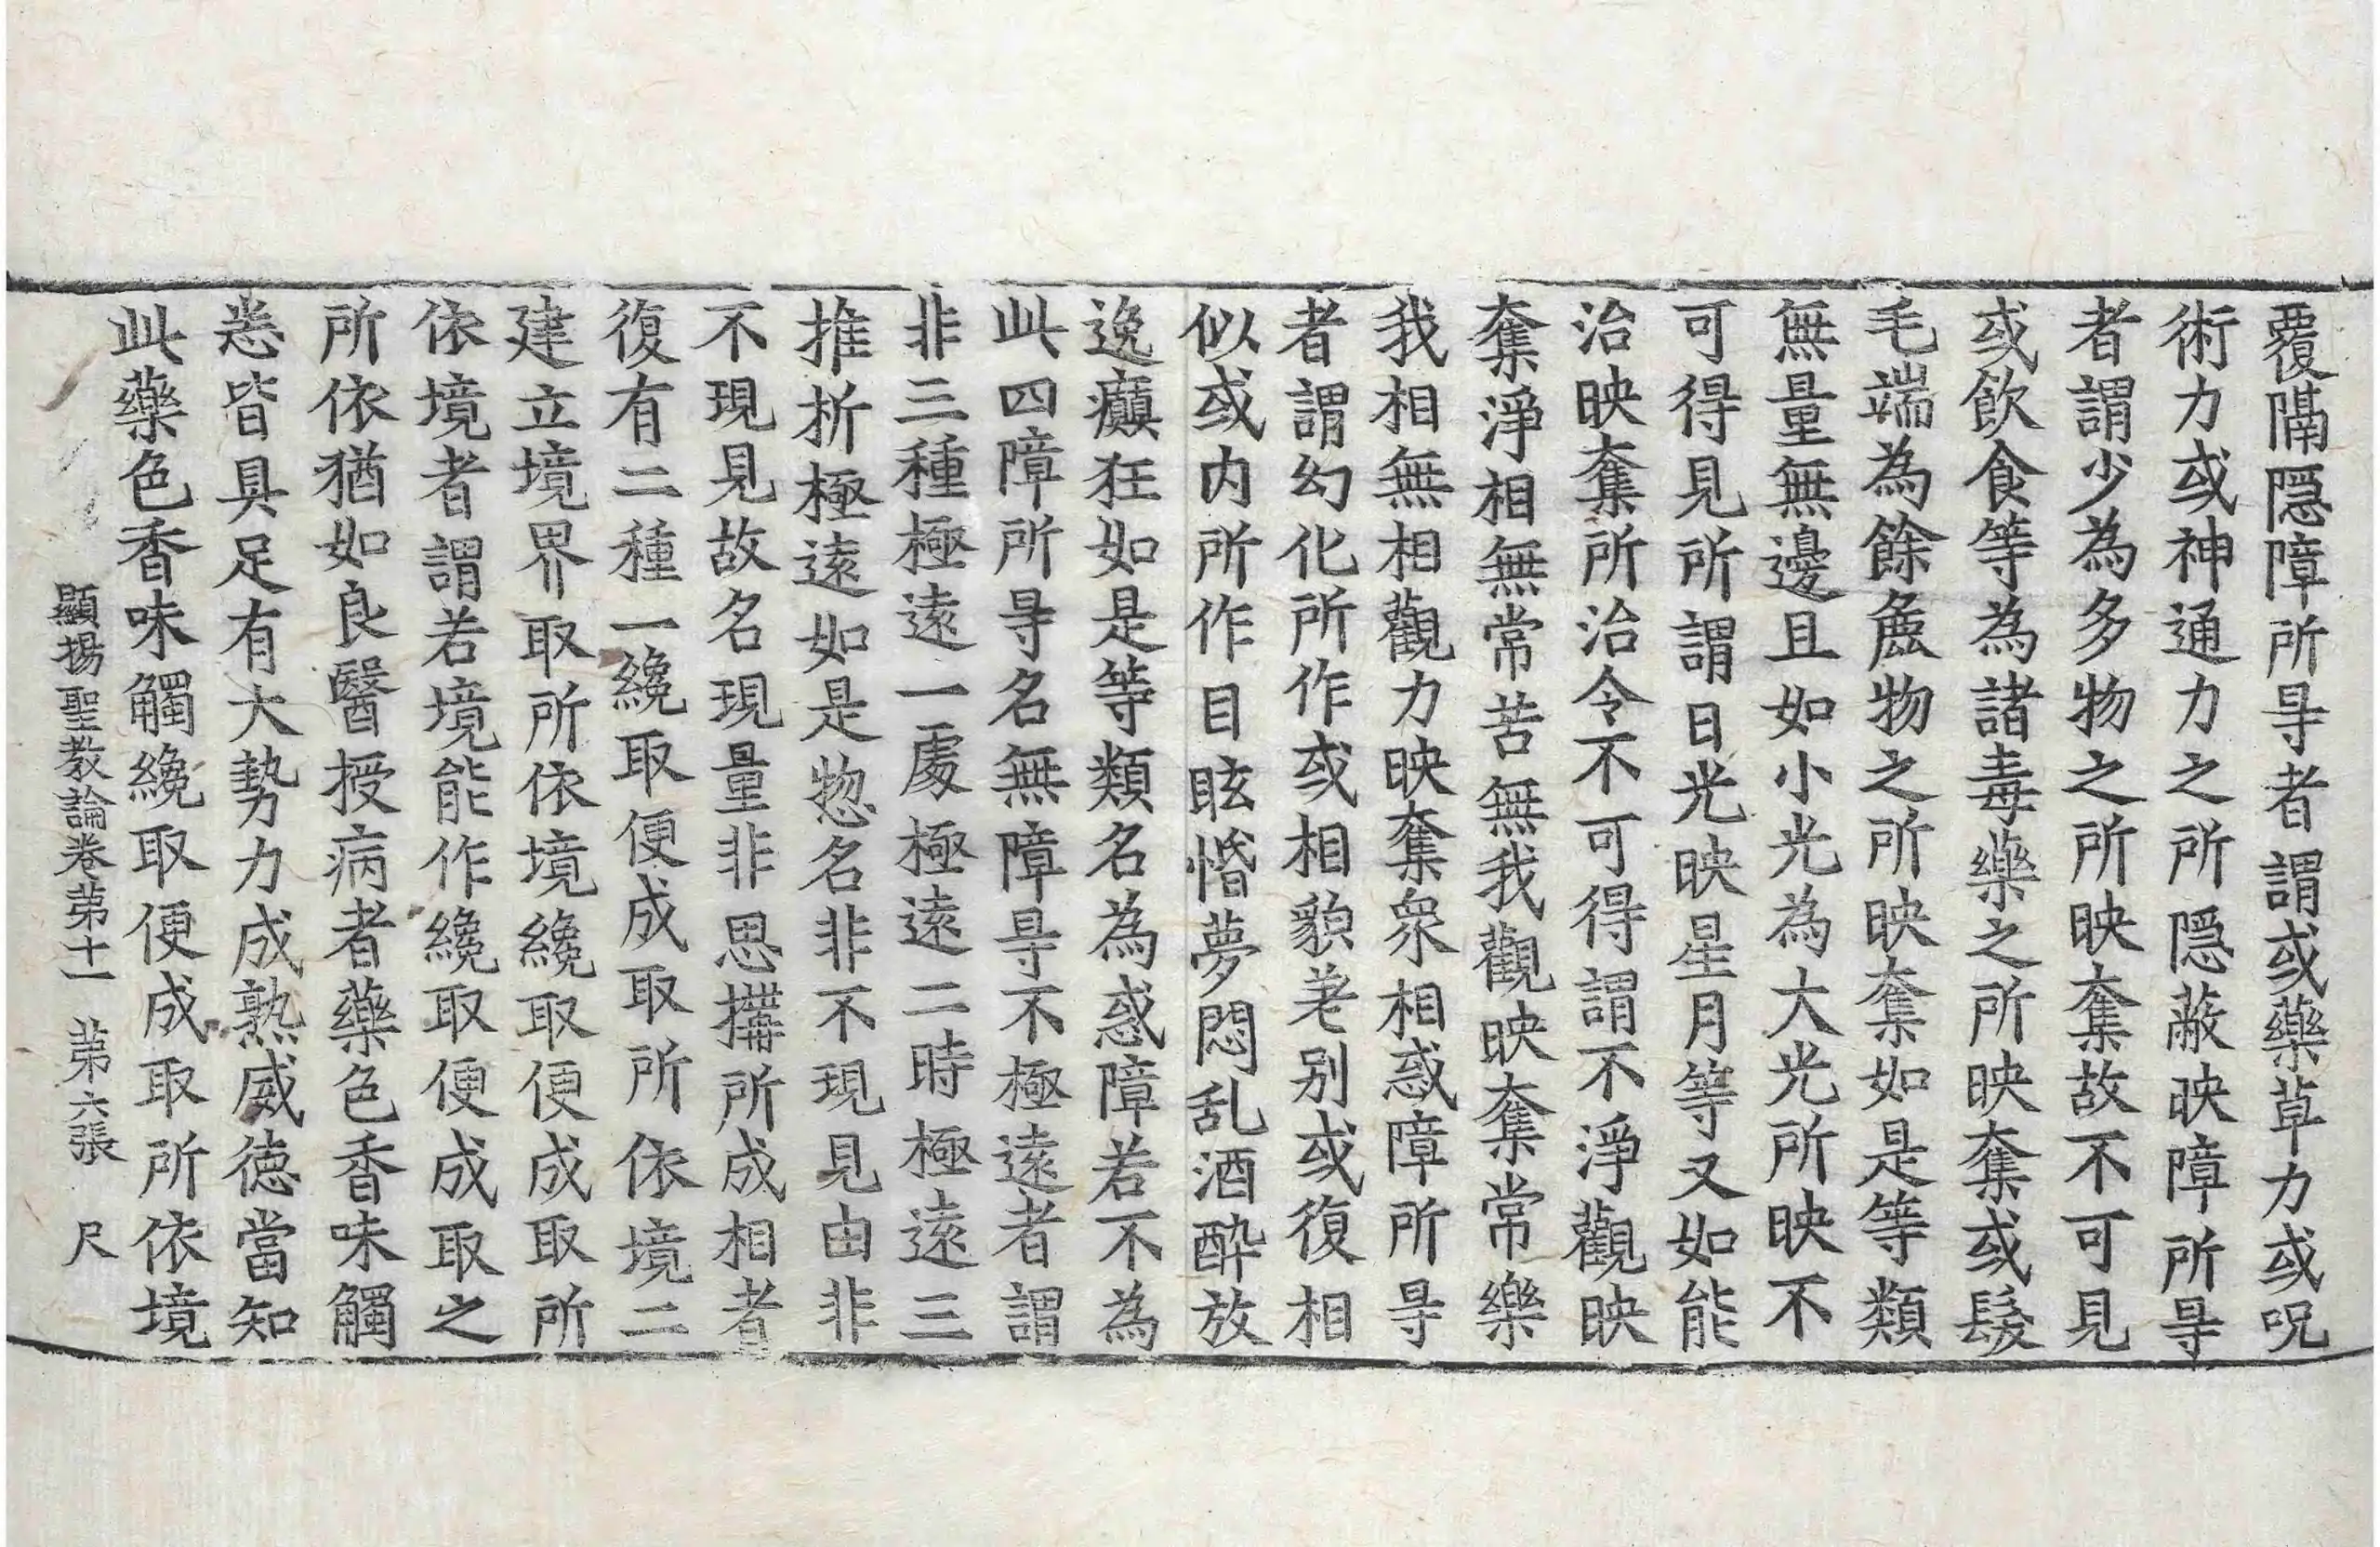 覆隔隱障所㝵者謂或藥草力或呪
術力或神通力之所隱蔽映障所㝵
者謂少為多物之所映奪故不可見
或飲食等為諸毒藥之所映奪或髮
毛端為餘麁物之所映奪如是等類
無量無邊且如小光為大光所映不
可得見所謂日光映星月等又如能
治映奪所治令不可得謂不淨觀映
奪淨相無常苦無我觀映奪常樂
我相無相觀力映奪衆相惑障所㝵
者謂幻化所作或相貌差别或復相
似或内所作目眩惛夢悶乱酒醉放
逸癲狂如是等類名為惑障若不為
此四障所㝵名無障㝵不極遠者謂
非三種極遠一處極遠二時極遠三
推折極遠如是惣名非不現見由非
不現見故名現量非思搆所成相者
復有二種一纔取便成取所依境二
建立境界取所依境纔取便成取所
依境者謂若境能作纔取便成取之
所依猶如良醫授病者藥色香味觸
悉皆具足有大勢力成熟威徳當知
此藥色香味觸纔取便成取所依境
顯揚聖教論卷苐十一 苐六張 尺